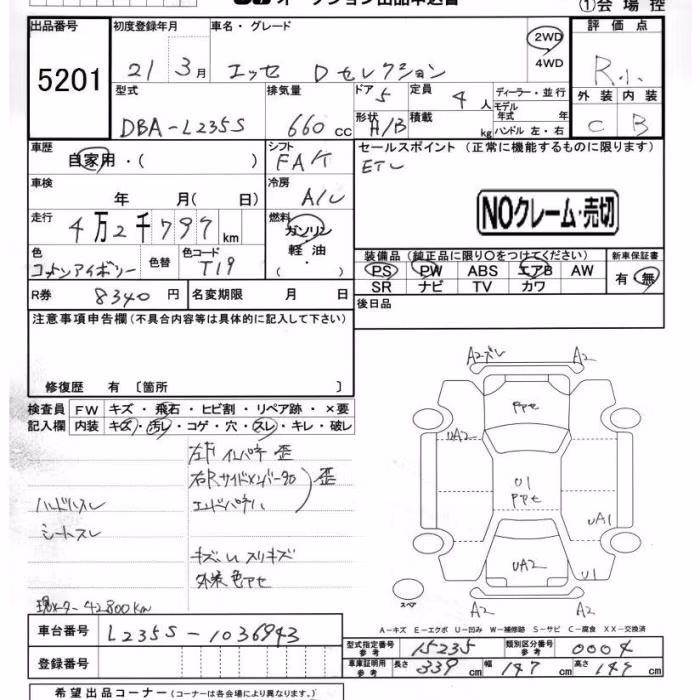 ①会 場 控
出品番号
5201
初度登録年月
21 3月
車名・グレード
エッセ Dセレクション
2WD
4WD
評 価 点
R
外 装 内 装
C B
型式
DBA-L235S
排気量
660cc
ドア 5
定員 4人
形状 H/B
積載 kg
ディーラー・並行
モデル年式 年
ハンドル 左・右
車歴
自家用・( )
シフト
FA/T
セールスポイント (正常に機能するものに限ります)
車検
年 月( 日)
冷房
A/C
NOクレーム・売切
走行
4万2千797km
燃料
ガソリン
軽 油
( )
色
色替
色コード
T19
装備品(純正品に限り○をつけてください)
PS PW ABS エアB AW
SR ナビ TV カワ
新車保証書
有・無
R券 8340円
名変期限 月 日
後日品
注意事項申告欄(不具合内容等は具体的に記入して下さい)
修復歴 有 〔箇所 〕
検査員
記入欄
FW キズ・飛石・ヒビ割・リペア跡・×要
内装 キズ・汚レ・コゲ・穴・スレ・キレ・破レ
左F インパネ 歪
歪
ハンドルスレ
シートスレ
キズ U スリキズ
外装色アセ
現メーター 42800km
A2ズレ
A2
PPセ
UA2
U1
PPセ
UA1
UA2
U1
A2
A2
スペア
A-キズ E-エクボ U-凹み W-補修跡 S-サビ C-腐食 XX-交換済
車台番号
L235S-1036943
登録番号
型式指定番号
参考
15235
類別区分番号
参考
0004
車庫証明用
参考
長さ 339cm
幅 147cm
高さ 147cm
希望出品コーナー(コーナーは各会場により異なります。)